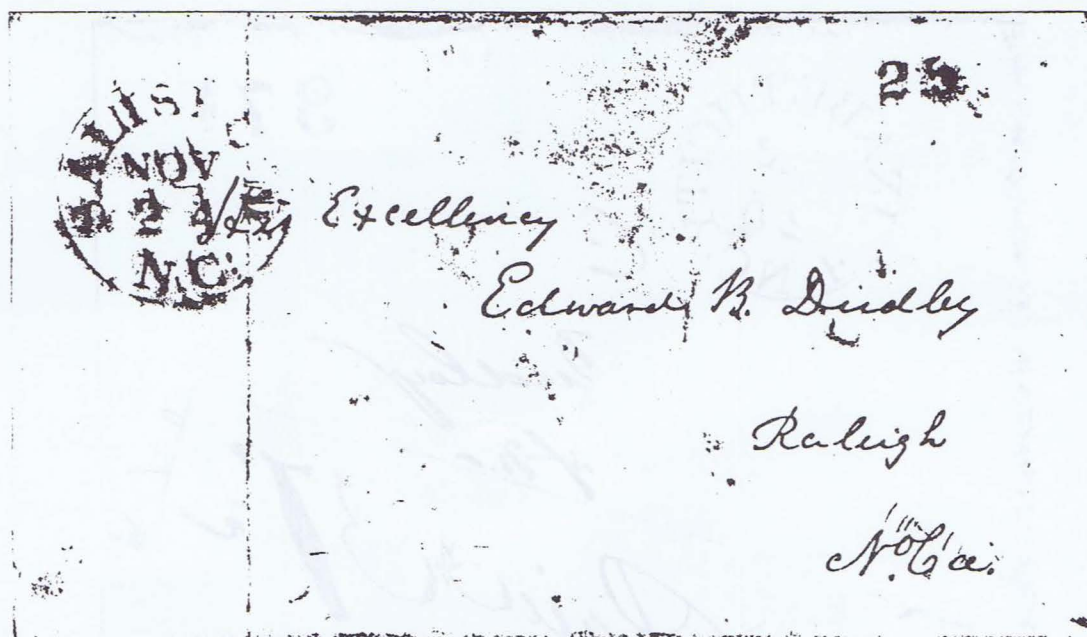 25
NOV
2
N.C.
His Excellency
Edward B. Dudley
Raleigh
No Ca.